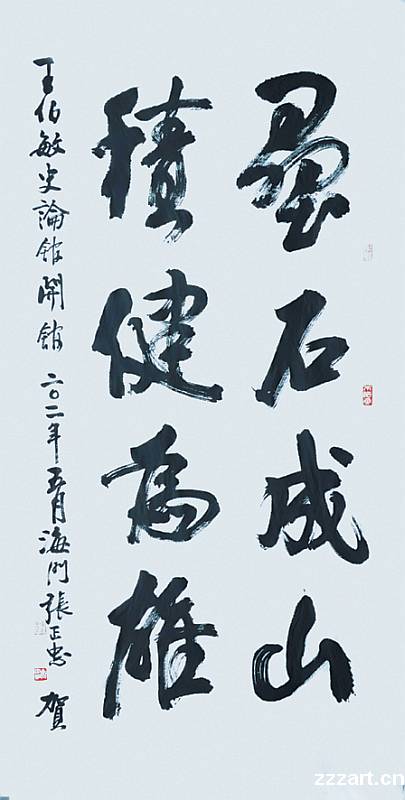 疊石成山
積健為雄
王伯敏史論館開館 二〇一二年五月海門張正忠 賀
zzzart.cn